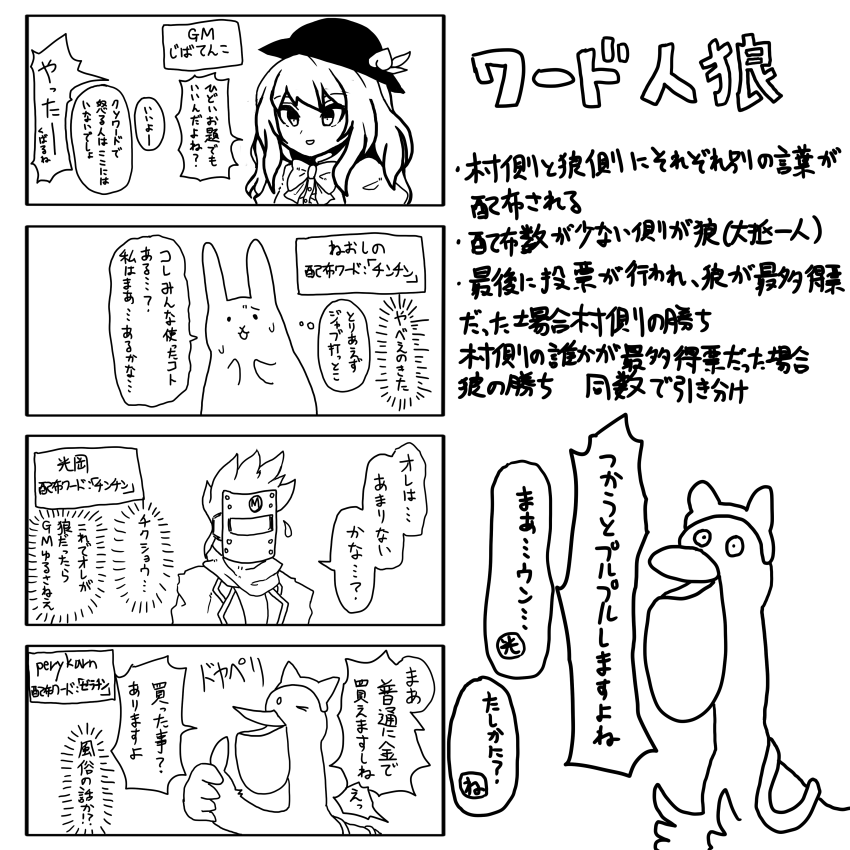 ワード人狼
・村側と狼側にそれぞれ別の言葉が
配布される
・配布数が少ない側が狼(大抵一人)
・最後に投票が行われ、狼が最多得票
だった場合村側の勝ち
村側の誰かが最多得票だった場合
狼の勝ち 同数で引き分け
GM
じばてんこ
ひどいお題でも
いいんだよね?
いいよー
クソワードで
怒る人はここには
いないでしょ
やったー
くばるね
ねおしの
配布ワード:「チンチン」
やべえのきた
とりあえず
ジャブ打っと…
コレみんな使ったコト
ある…?
私はまあ…あるかな…
オレは…
あまりない
かな…?
M
光岡
配布ワード:「チンチン」
チクショウ…
これでオレが
狼だったら
GMゆるさねえ
perykarn
配布ワード:「ゼラチン」
まあ
普通に金で
買えますしね
えっ
ドヤペリ
買った事?
ありますよ
風俗の話か!?
つかうとプルプルしますよね
まあ…ウン…
光
たしかに?
ね